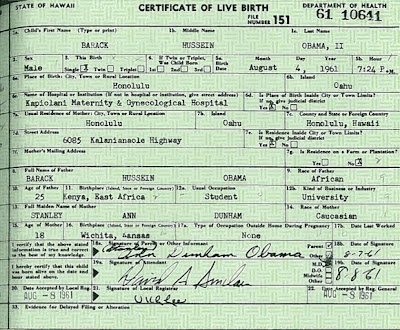 STATE OF HAWAII CERTIFICATE OF LIVE BIRTH DEPARTMENT OF HEALTH
FILE NUMBER 151 61 10641
1a. Child's First Name (Type or print) 1b. Middle Name 1c. Last Name
BARACK HUSSEIN OBAMA, II
2. Sex 3. This Birth 4. If Twin or Triplet, Was Child Born 5a. Birth Date Month Day Year 5b. Hour
Male Single X Twin Triplet 1st 2nd 3rd August 4, 1961 7:24 P.M.
6a. Place of Birth: City, Town or Rural Location 6b. Island
Honolulu Oahu
6c. Name of Hospital or Institution (If not in hospital or institution, give street address) 6d. Is Place of Birth Inside City or Town Limits?
If no, give judicial district
Kapiolani Maternity & Gynecological Hospital Yes X No
7a. Usual Residence of Mother: City, Town or Rural Location 7b. Island 7c. County and State or Foreign Country
Honolulu Oahu Honolulu, Hawaii
7d. Street Address 7e. Is Residence Inside City or Town Limits?
If no, give judicial district
6085 Kalanianaole Highway Yes X No
7f. Mother's Mailing Address 7g. Is Residence on a Farm or Plantation?
Yes No X
8. Full Name of Father 9. Race of Father
BARACK HUSSEIN OBAMA African
10. Age of Father 11. Birthplace (Island, State or Foreign Country) 12a. Usual Occupation 12b. Kind of Business or Industry
25 Kenya, East Africa Student University
13. Full Maiden Name of Mother 14. Race of Mother
STANLEY ANN DUNHAM Caucasian
15. Age of Mother 16. Birthplace (Island, State or Foreign Country) 17a. Type of Occupation Outside Home During Pregnancy 17b. Date Last Worked
18 Wichita, Kansas None
I certify that the above stated information is true and correct to the best of my knowledge. 18a. Signature of Parent or Other Informant Parent Other 18b. Date of Signature
Ann Dunham Obama 8-7-61
I hereby certify that this child was born alive on the date and hour stated above. 19a. Signature of Attendant M.D. D.O. Midwife Other 19b. Date of Signature
David A. Sinclair 8-8-61
20. Date Accepted by Local Reg. 21. Signature of Local Registrar 22. Date Accepted by Reg. General
AUG -8 1961 AUG -8 1961
23. Evidence for Delayed Filing or Alteration